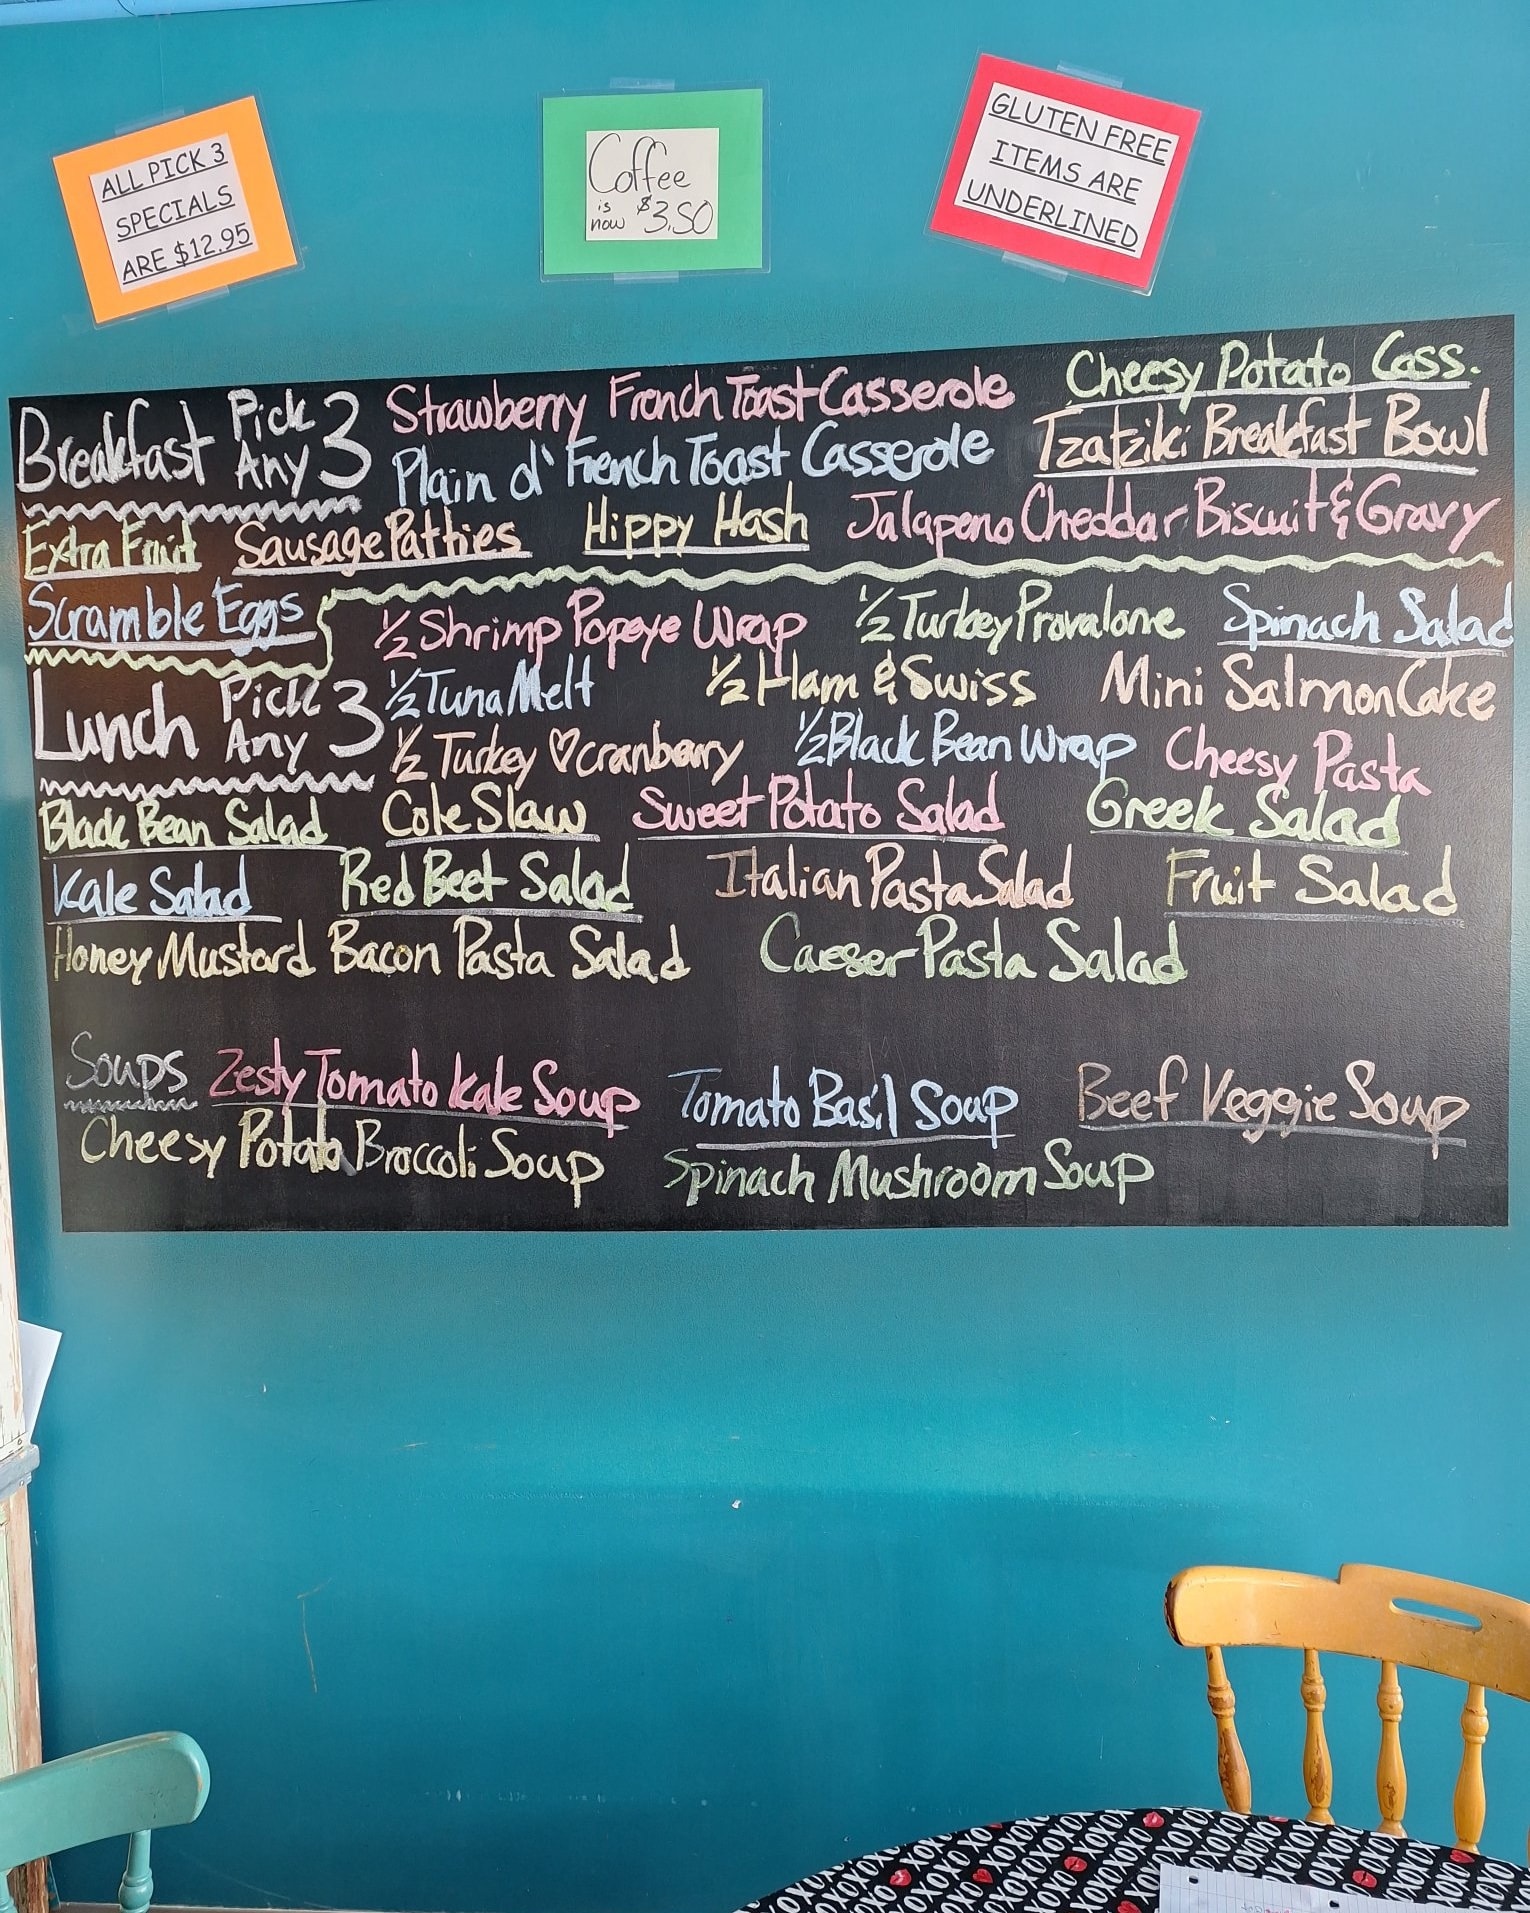 ALL PICK 3
SPECIALS
ARE $12.95
Coffee
is now $3.50
GLUTEN FREE
ITEMS ARE
UNDERLINED
Breakfast Pick Any 3
Strawberry French Toast Casserole
Cheesy Potato Cass.
Plain ol' French Toast Casserole
Tzatziki Breakfast Bowl
Extra Fruit Sausage Patties Hippy Hash Jalapeno Cheddar Biscuit & Gravy
Scramble Eggs
Lunch Pick Any 3
½ Shrimp Popeye Wrap ½ Turkey Provalone Spinach Salad
½ Tuna Melt ½ Ham & Swiss Mini Salmon Cake
½ Turkey ♡ cranberry ½ Black Bean Wrap Cheesy Pasta
Black Bean Salad Cole Slaw Sweet Potato Salad Greek Salad
Kale Salad Red Beet Salad Italian Pasta Salad Fruit Salad
Honey Mustard Bacon Pasta Salad Caeser Pasta Salad
Soups Zesty Tomato Kale Soup Tomato Basil Soup Beef Veggie Soup
Cheesy Potato Broccoli Soup Spinach Mushroom Soup
XOXOXO